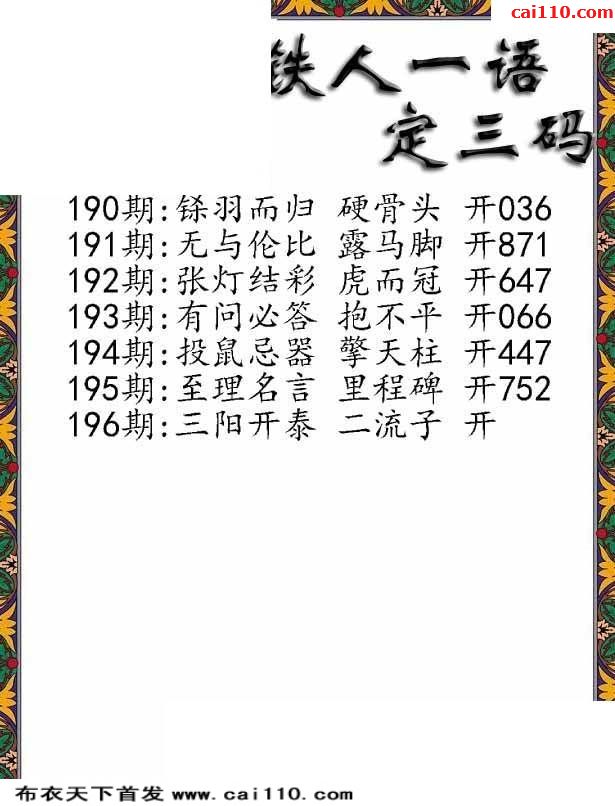 cai110.com
铁人一语
定三码
190期:铩羽而归 硬骨头 开036
191期:无与伦比 露马脚 开871
192期:张灯结彩 虎而冠 开647
193期:有问必答 抱不平 开066
194期:投鼠忌器 擎天柱 开447
195期:至理名言 里程碑 开752
196期:三阳开泰 二流子 开
布衣天下首发 www.cai110.com